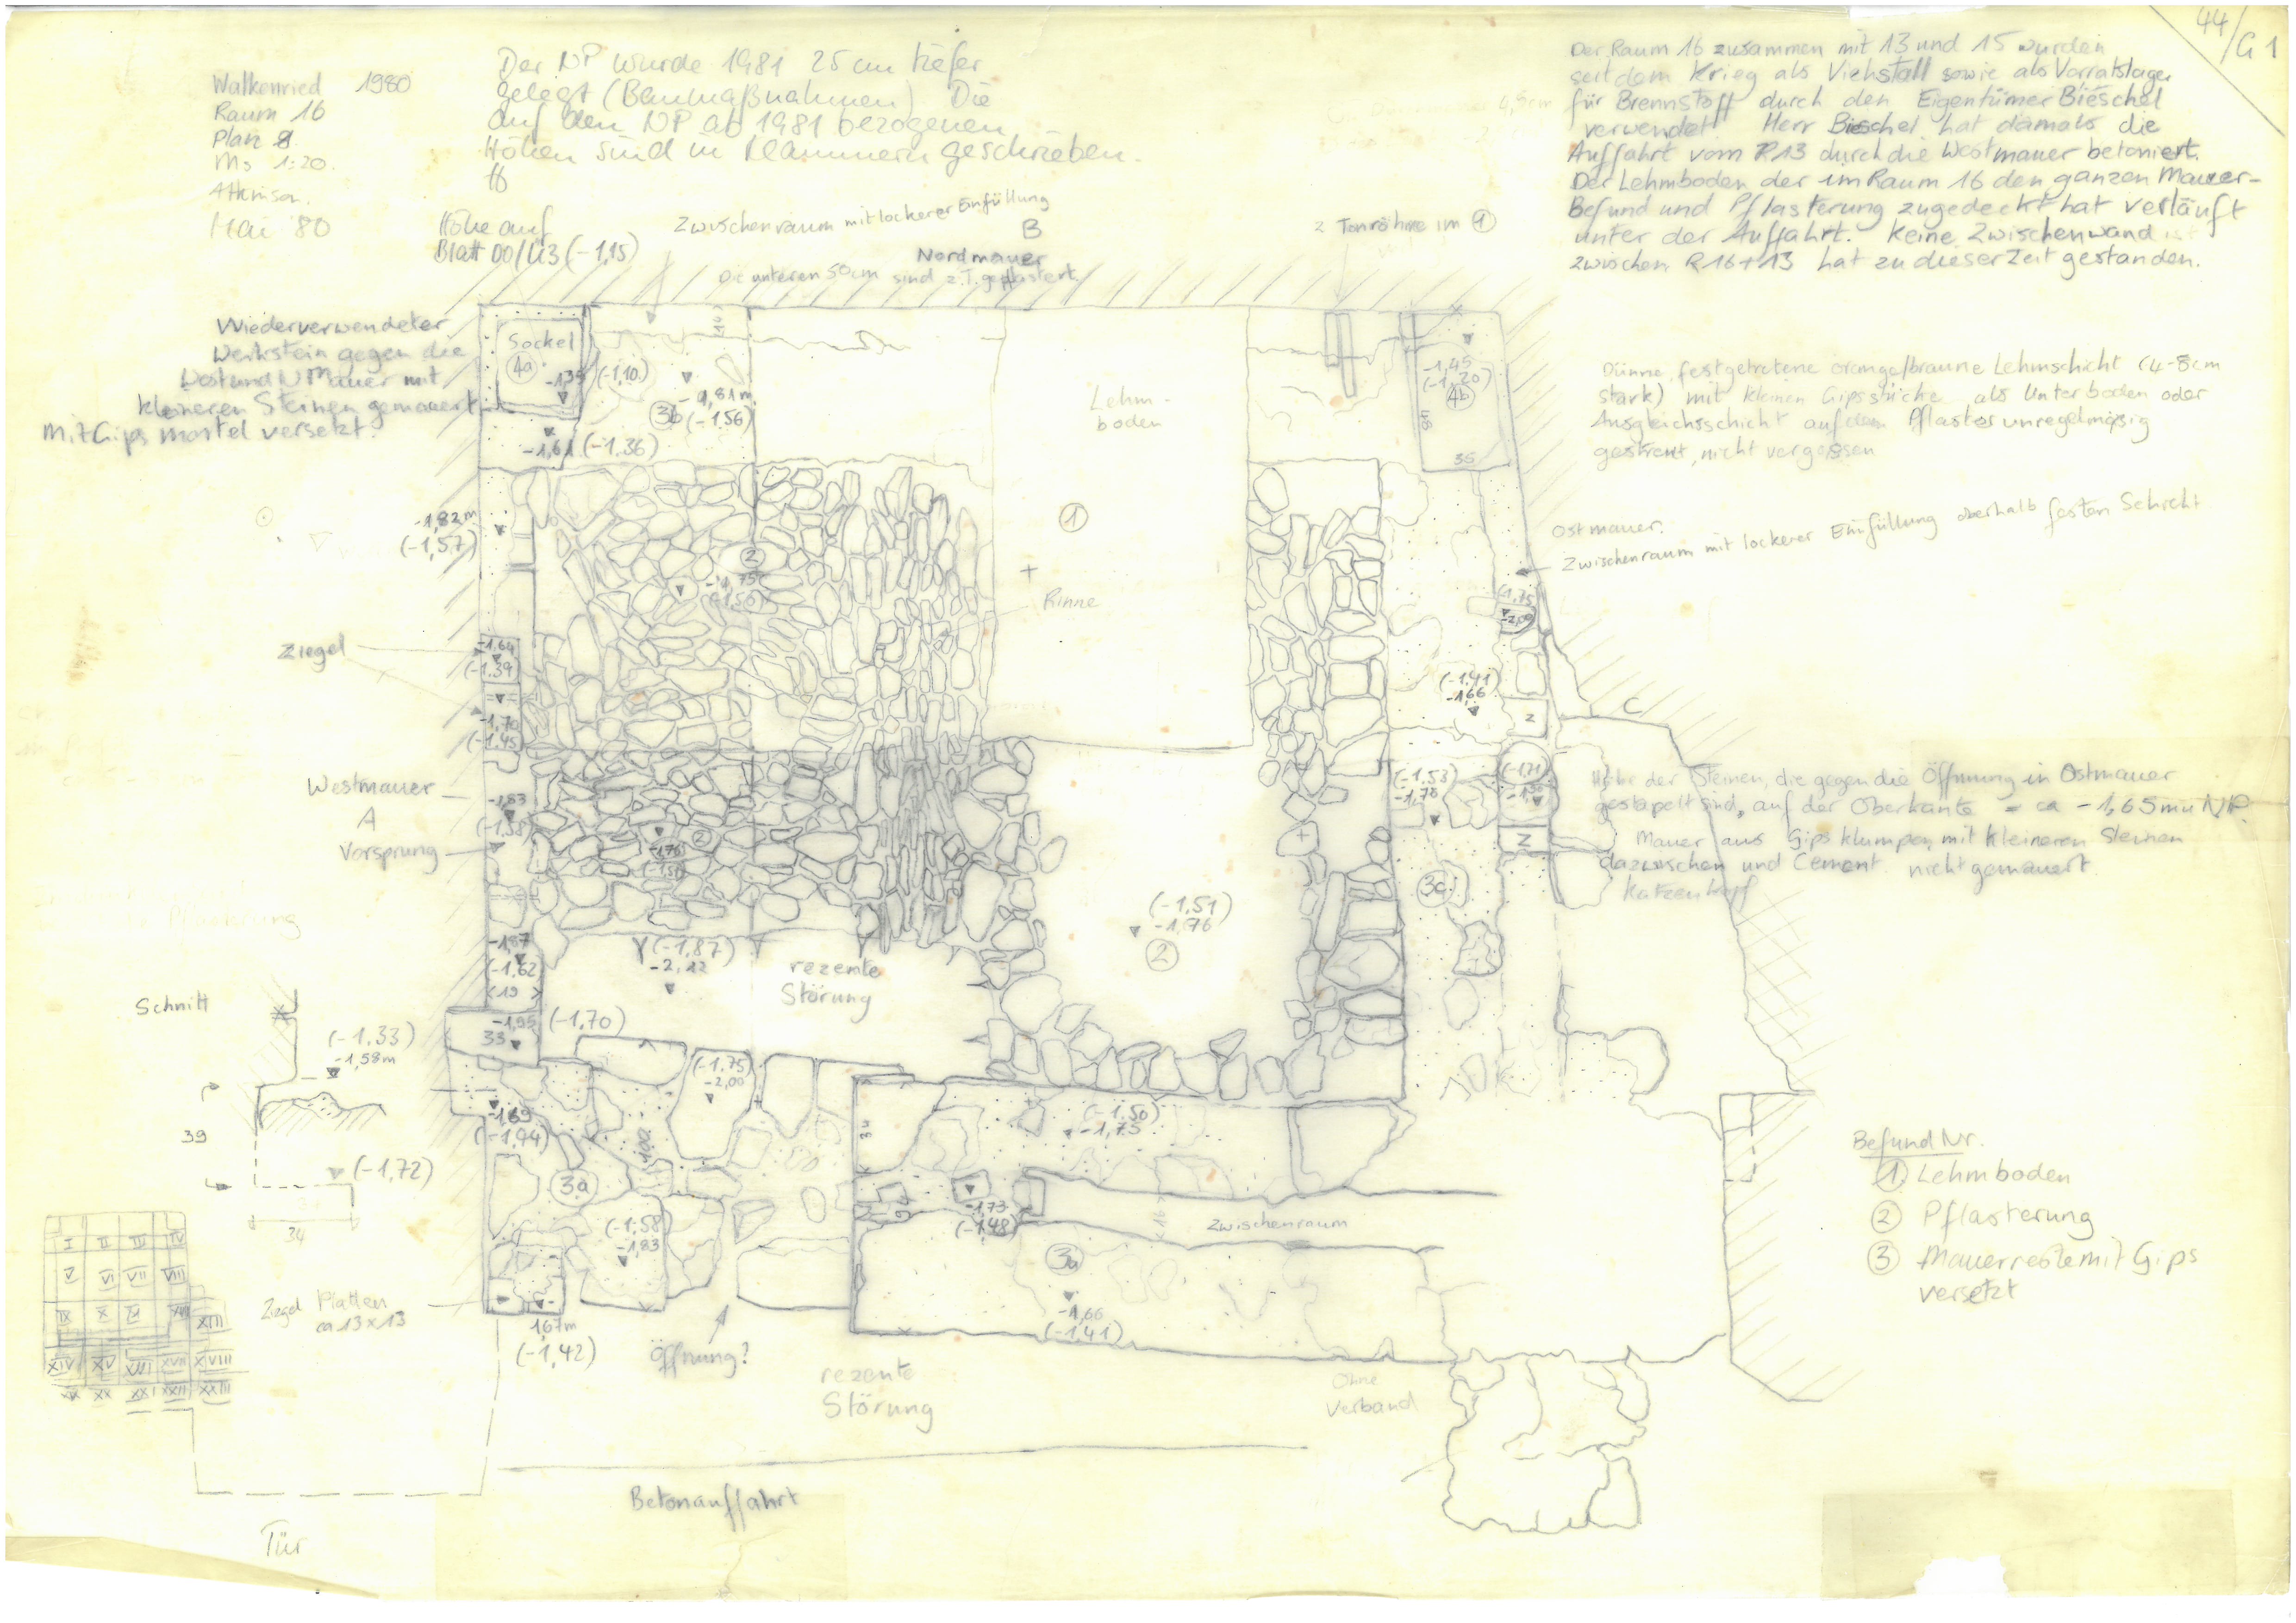 44/G1
Walkenried 1980
Raum 16
Plan 8
Ms 1:20.
Mai '80
Der NP wurde 1981 25cm tiefer
gelegt (Baumaßnahmen) Die
auf den NP ab 1981 bezogenen
Höhen sind in Klammern geschrieben.
Der Raum 16 zusammen mit 13 und 15 wurden
seit dem Krieg als Viehstall sowie als Vorratslager
für Brennstoff durch den Eigentümer Bieschel
verwendet Herr Bieschel hat damals die
Auffahrt vom R13 durch die Westmauer betoniert.
Der Lehmboden der im Raum 16 den ganzen Mauer-
Befund und Pflasterung zugedeckt hat verläuft
unter der Auffahrt. Keine Zwischenwand ist
zwischen R16+13 hat zu dieser Zeit gestanden.
Höhe auf
Blatt 00/U3 (-1,15)
Zwischenraum mit lockerer Einfüllung
B
Nordmauer
Die unteren 50cm sind z.T. gepflastert.
2 Tonröhre im 1
Wiederverwendeter
Werkstein gegen die
West und N Mauer mit
kleineren Steinen gemauert
mit Gips mörtel versetzt.
Sockel
4a
-1,35
(-1,10)
-1,61 (-1,36)
3b
-1,81m
(-1,56)
Lehm-
boden
1
-1,45
(-1,20)
4b
35
Dünne, festgetretene orange/braune Lehmschicht (4-8cm
stark) mit kleinen Gipsstücke als Unterboden oder
Ausgleichsschicht auf dem Pflaster unregelmässig
gestreut, nicht vergossen
Ostmauer.
Zwischenraum mit lockerer Einfüllung oberhalb festen Schicht
-1,82m
(-1,57)
2
-1,75
(-1,50)
Rinne
Ziegel
-1,64
(-1.39)
-1,70
(-1.45)
(-1,75
-2,00
(-1.41)
-1,66
Z
C
Westmauer
A
Vorsprung
-1,83
(-1,58)
2
-1,76
(-1,51)
(-1.53)
-1,78
(-1,71)
Z
3a
Höhe der Steinen, die gegen die Öffnung in Ostmauer
gestapelt sind, auf der Oberkante = ca -1,65m u NP.
Mauer aus Gipsklumpen, mit kleineren Steinen
dazwischen und Cement nicht gemauert.
Katzenkopf
(-1,51)
-1,76
2
-1,87
(-1,62
19
(-1,87)
-2,12
rezente
Störung
-1,95 (-1,70)
33
Schnitt
(-1.33)
-1,58m
39
(-1,72)
34
-1,69
(-1,44)
(-1.75)
-2,00
(-1.50)
-1,75
34
3a
(-1.58)
-1,83
-1,73
(-1.48)
16
Zwischenraum
3a
-1,66
(-1,41)
Befund Nr.
1 Lehmboden
2 Pflasterung
3 Mauerreste mit Gips
versetzt
I II III IV
V VI VII VIII
IX X
XIII
XIV XV XVI XVII XVIII
XX XXI XXII XXIII
Ziegel Platten
ca 13x13
1,67m
(-1,42)
Öffnung?
rezente
Störung
Ohne
Verband
Betonauffahrt
Tür